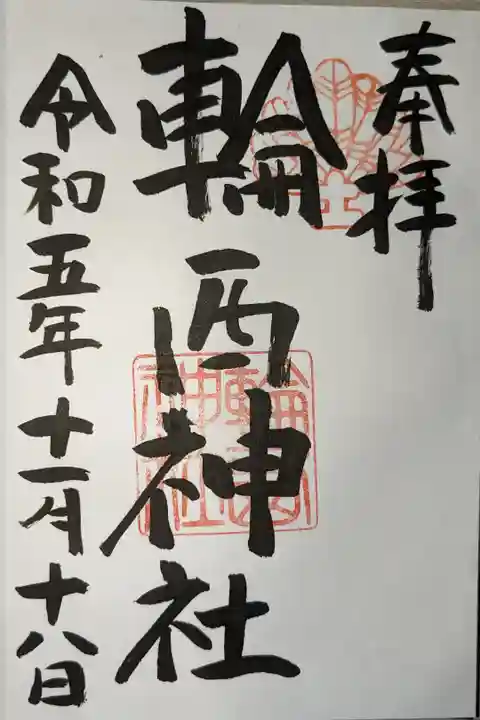 奉拝
輪西神社
令和五年十一月十八日
輪西
神社
社